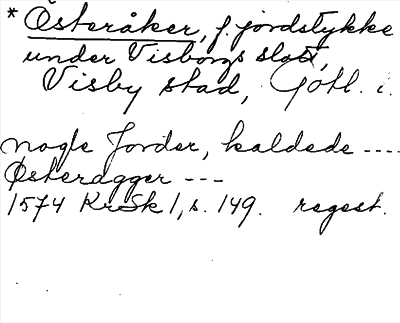 * Österåker, f. jordstykke
under Visborgs slott,
Visby stad, Gotl. i.
nogle Jorder, kaldede ----
Østeragger ---
1574 KrSk 1, s. 149. regest.